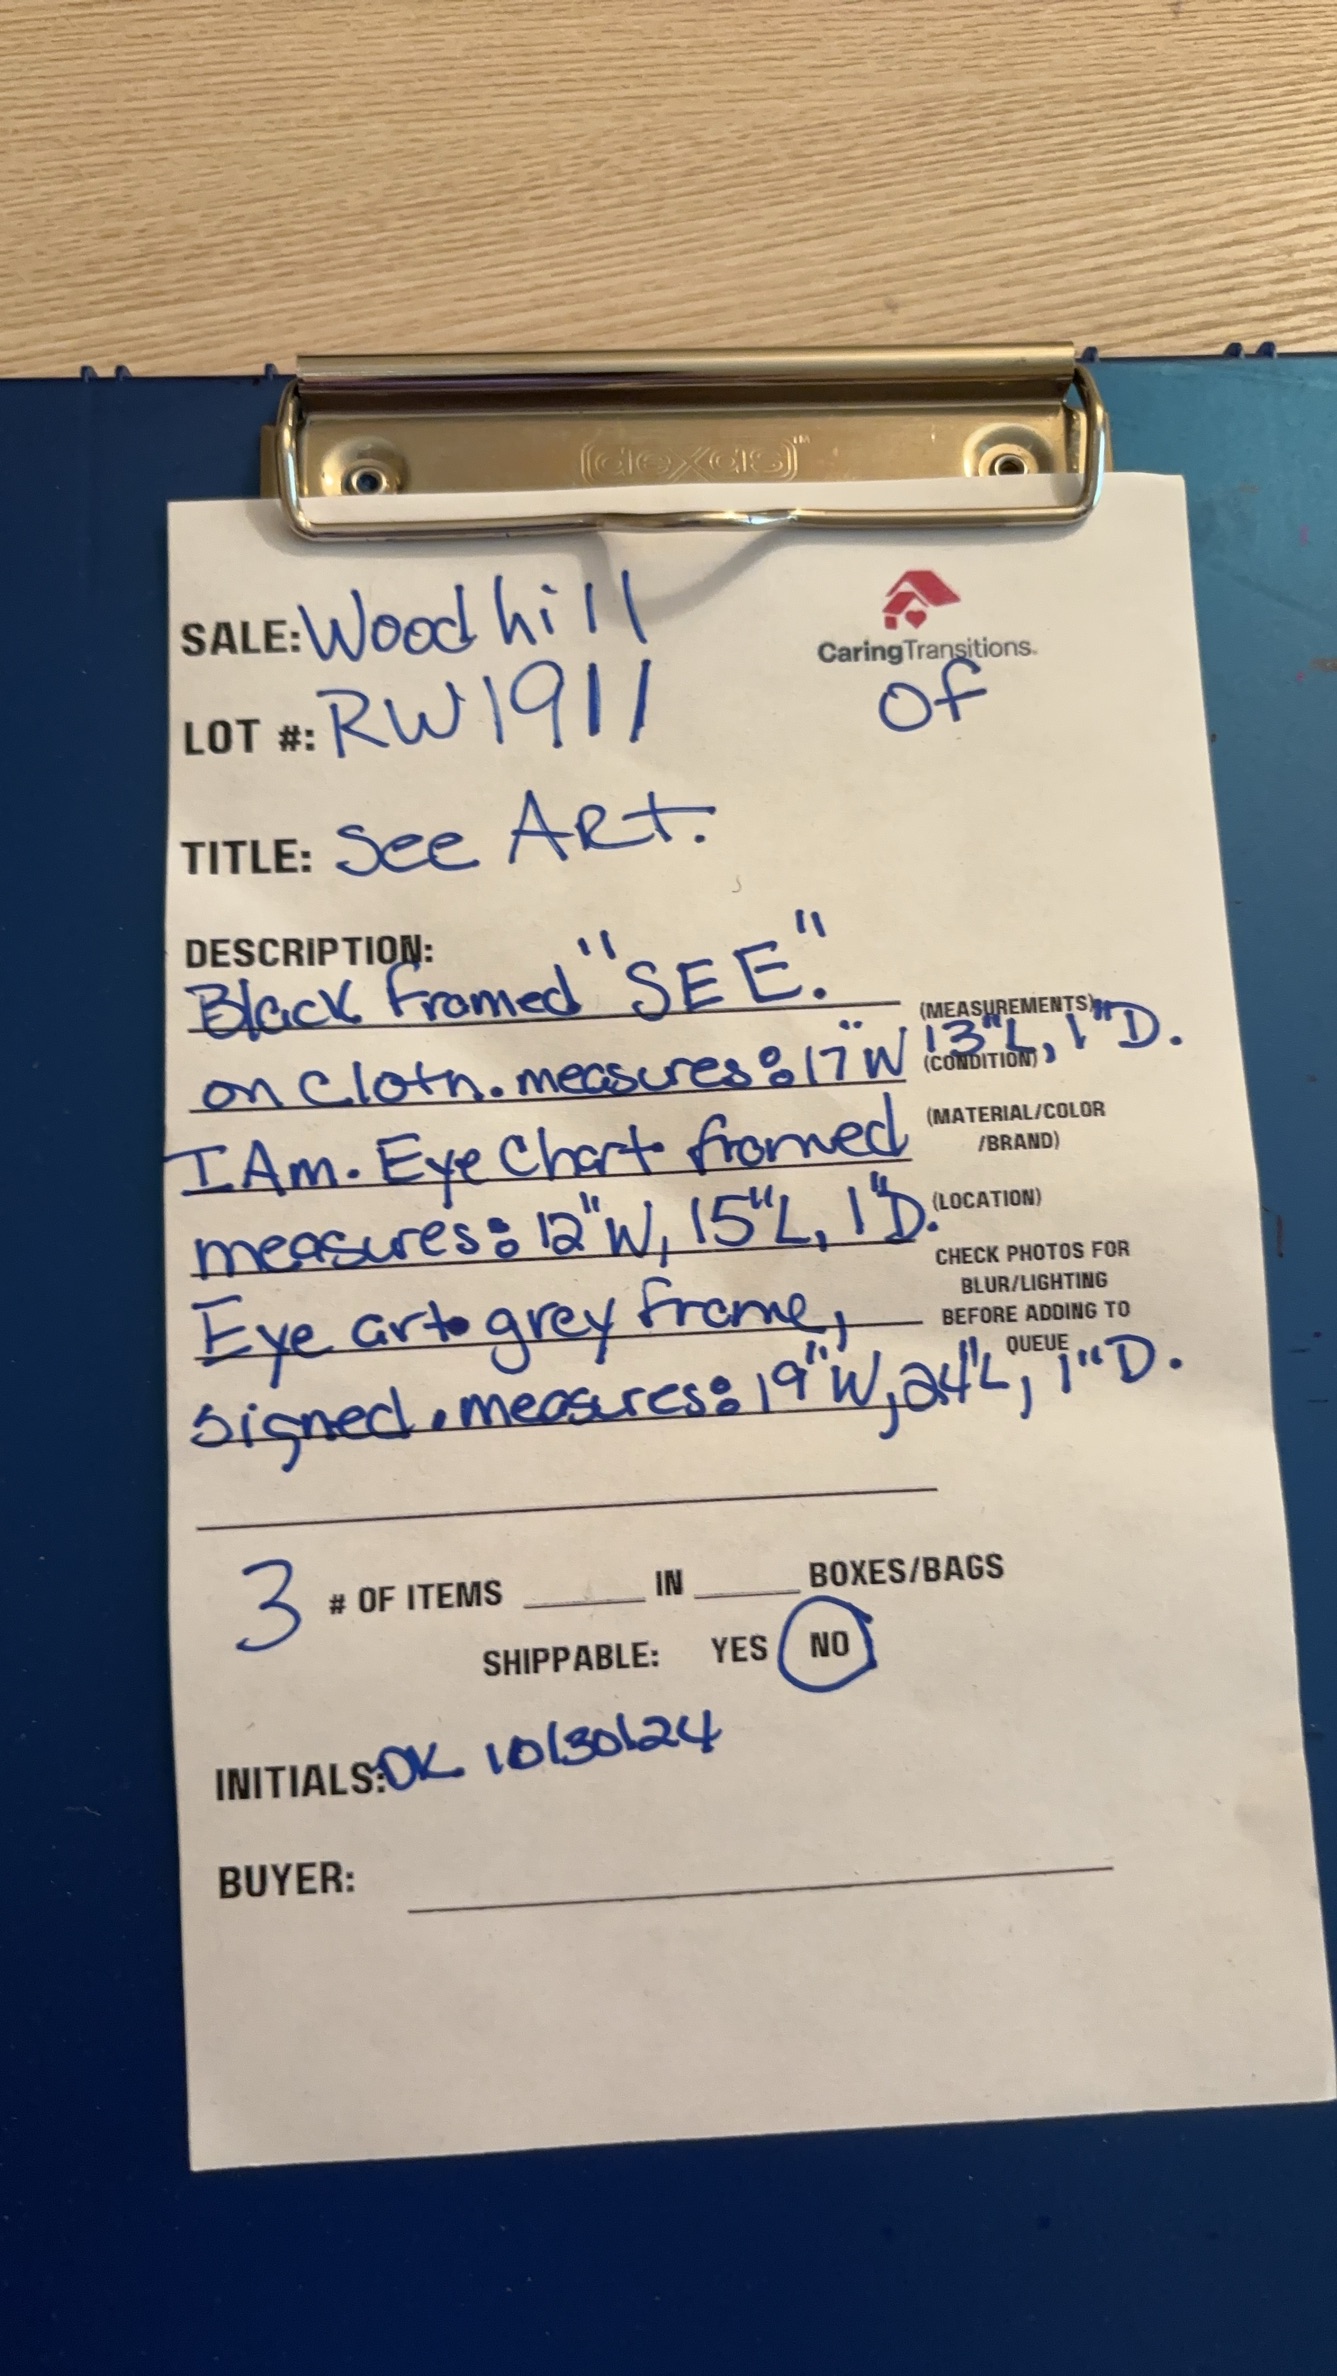 dexas™
SALE: Woodhill
CaringTransitions.
LOT #: RW1911
of
TITLE: See ARt.
DESCRIPTION:
Black Framed "SEE."
(MEASUREMENTS)
on Cloth. measures: 17"W 13"L, 1"D.
(CONDITION)
I Am. Eye Chart framed
(MATERIAL/COLOR
/BRAND)
measures: 12"W, 15"L, 1"D.
(LOCATION)
CHECK PHOTOS FOR
BLUR/LIGHTING
Eye art. grey frame,
BEFORE ADDING TO
QUEUE
signed. measures: 19"W, 24"L, 1"D.
3 # OF ITEMS IN BOXES/BAGS
SHIPPABLE: YES NO
INITIALS: DK 10/30/24
BUYER: